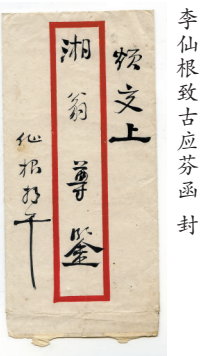 李仙根致古应芬函 封
煩交上
湘翁尊鑒
仙根